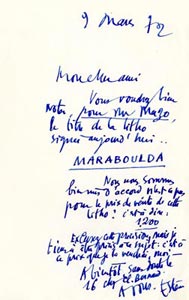 9 Mars 72
Mon cher ami
Vous voudrez bien
noter, pour mr Mago,
le titre de la litho
signée aujourd'hui..
MARABOULDA
Nous nous sommes
bien mis d'accord
pour le prix de vente de cette
litho : c'est à dire :
1200
Excusez cette précision, mais je
tiens à être précis à ce sujet : c'est
à prix que je la vendrai, moi
A bientôt sans doute
16 chez
A vous.